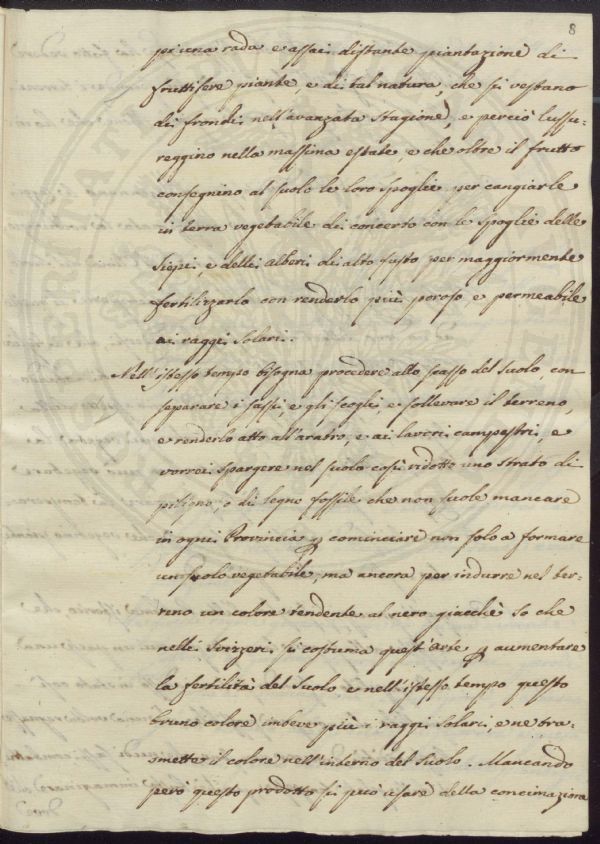 8
pr una rada e assai distante piantazione di
fruttifere piante, e di tal natura, che si vestano
di frondi nell'avanzata stagione, e perciò lussu-
reggino nella massima estate, e che oltre il frutto
consegnino al suolo le loro spoglie per cangiarle
in terra vegetabile di concerto con le spoglie delle
siepi e delli alberi di alto fusto per maggiormente
fertilizzarlo con renderlo più poroso, e permeabile
ai raggi solari.
Nell'istesso tempo bisogna procedere allo scasso del suolo, con
separare i sassi, e gli scogli, e sollevare il terreno,
e renderlo atto all'aratro, e ai lavori campestri, e
vorrei spargere nel suolo così ridotto uno strato di
o di legno fossile che non suole mancare
in ogni Provincia p cominciare non solo a formare
un suolo vegetabile, ma ancora per indurre nel ter-
reno un colore tendente al nero giacchè so che
nelli Svizzeri si costuma quest'arte p aumentare
la fertilità del suolo e nell'istesso tempo questo
bruno colore imbeve più i raggi solari, e ne tra-
smette il calore nell'interno del suolo. Mancando
però questo prodotto si può usare della concimazione